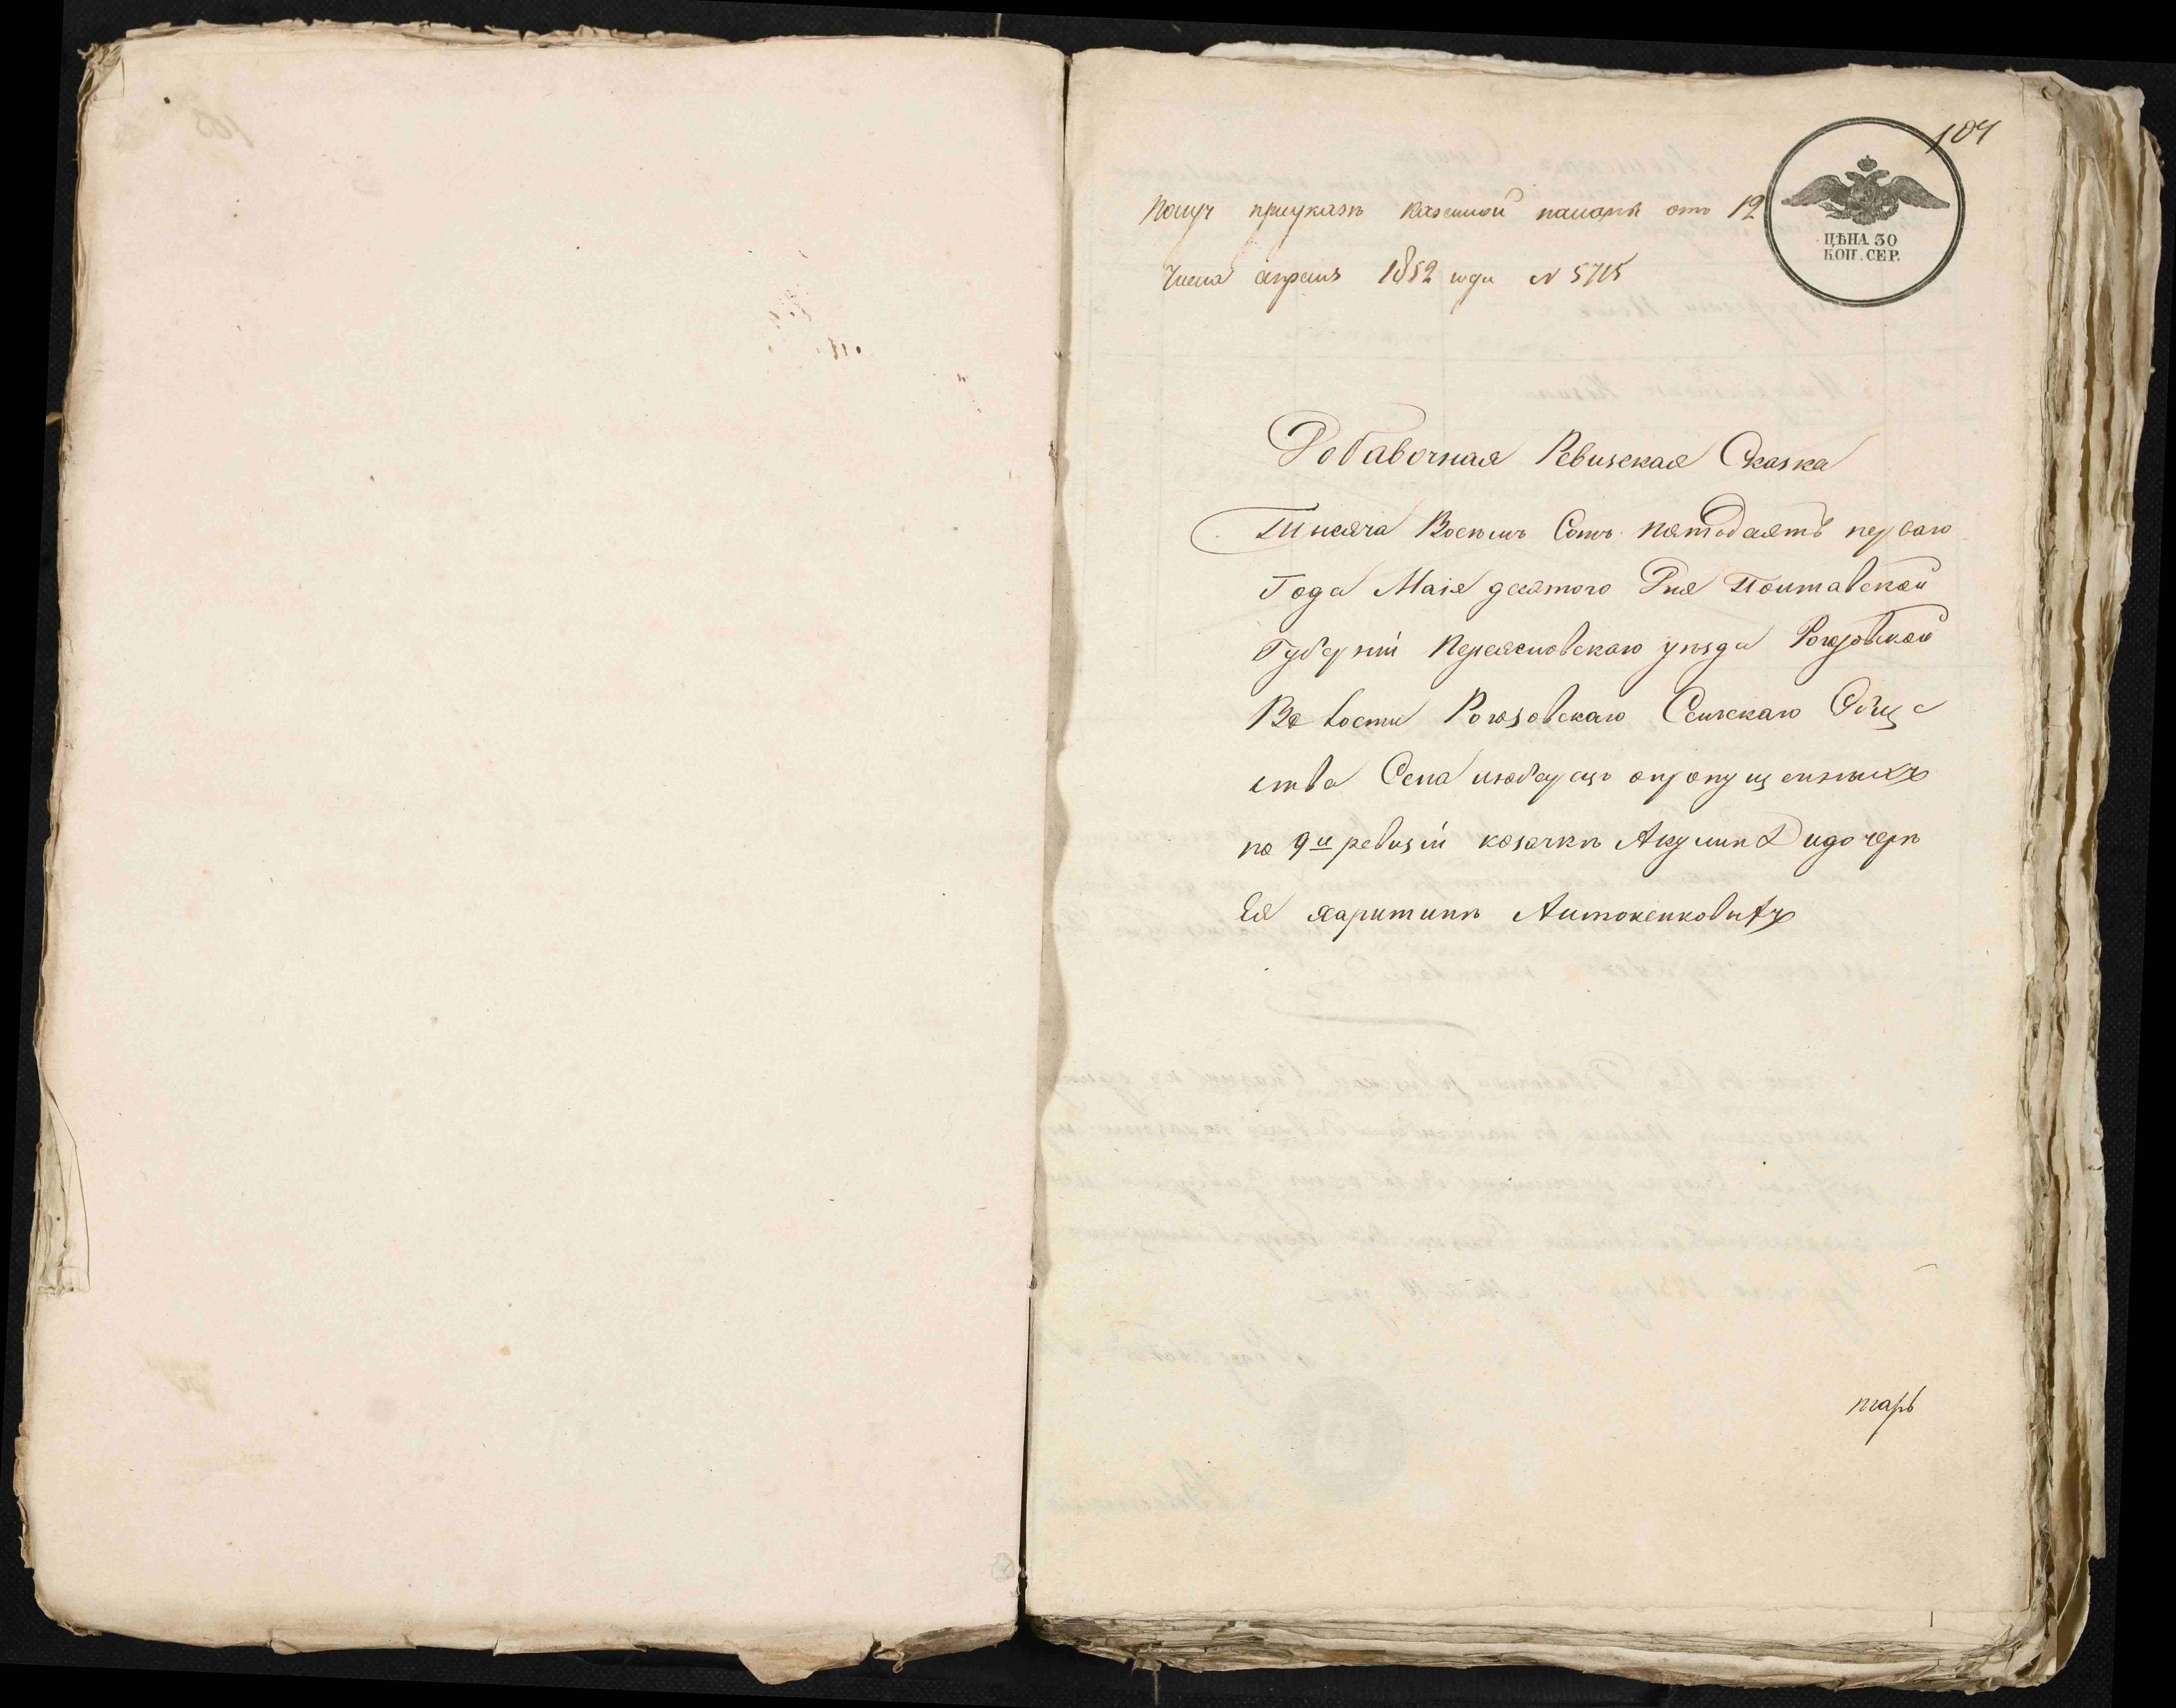 104
Получ приуказѣ казенной палаты отъ 12
Числа апреля 1852 года N 5715
ЦѢНА 30
КОП. СЕР.
Добавочная Ревизская Сказка
Тысяча Восемь Сотъ пятдесятъ перваго
Года Маія десятого Дня Полтавской
Губерніи Переясловскаго уѣзда Рогозовской
Волости Рогозовскаго Селскаго Обще
ства Села любарецъ опропущенныхъ
по 9й ревизіи козачкѣ Акулин и дочерѣ
Ея харитинѣ Антоненковыхъ
тарь